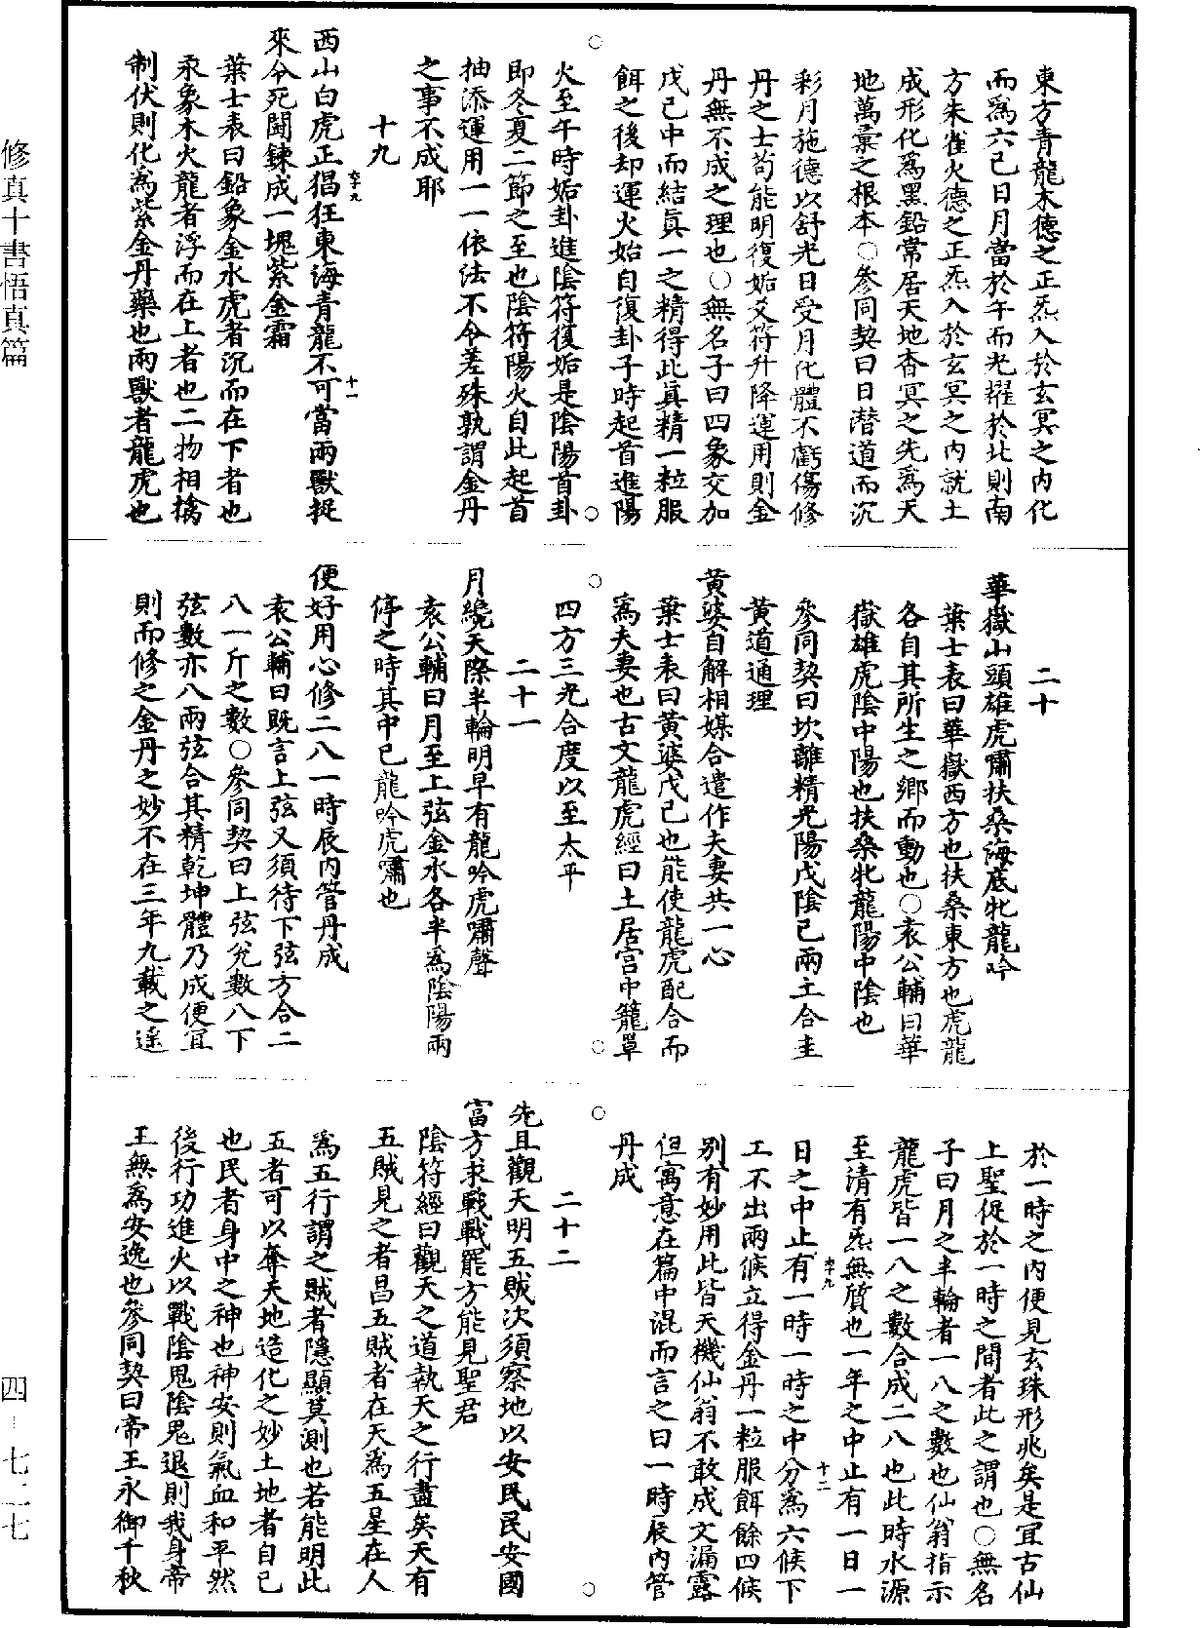 東方青龍木德之正炁入於玄冥之內化
而爲六己日月當於午而光耀於北則南
方朱雀火德之正炁入於玄冥之內就土
成形化爲黑鉛常居天地杳冥之先爲天
地萬彙之根本○參同契曰日潛道而沉
彩月施德以舒光日受月化體不虧傷修
丹之士茍能明復姤爻符升降運用則金
丹無不成之理也○無名子曰四象交加
戊己中而結眞一之精得此眞精一粒服
餌之後却運火始自復卦子時起首進陽
火至午時姤卦進陰符復姤是陰陽首卦
即冬夏二節之至也陰符陽火自此起首
抽添運用一一依法不令差殊孰謂金丹
之事不成耶
十九
西山白虎正猖狂東海青龍不可當兩獸捉
李九
十一
來令死鬪鍊成一塊紫金霜
葉士表曰鉛象金水虎者沉而在下者也
汞象木火龍者浮而在上者也二物相擒
制伏則化爲紫金丹藥也兩獸者龍虎也
二十
華嶽山頭雄虎嘯扶桑海底牝龍吟
葉士表曰華嶽西方也扶桑東方也虎龍
各自其所生之鄉而動也○袁公輔曰華
嶽雄虎陰中陽也扶桑牝龍陽中陰也
參同契曰坎離精光陽戊陰己兩土合圭
黄道通理
黄婆自解相媒合遣作夫妻共一心
葉士表曰黄婆戊己也能使龍虎配合而
爲夫妻也古文龍虎經曰土居宫中籠罩
四方三光合度以至太平
二十一
月纔天際半輪明早有龍吟虎嘯聲
袁公輔曰月至上弦金水各半爲陰陽兩
停之時其中已龍吟虎嘯也
便好用心修二八一時辰內管丹成
袁公輔曰既言上弦又須待下弦方合二
八一斤之數○參同契曰上弦兊數八下
弦數亦八兩弦合其精乾坤體乃成便宜
則而修之金丹之妙不在三年九載之遥
於一時之內便見玄珠形兆矣是宜古仙
上聖促於一時之間者此之謂也○無名
子曰月之半輪者一八之數也仙翁指示
龍虎皆一八之數合成二八也此時水源
至清有炁無質也一年之中止有一日一
日之中止有一時一時之中分爲六候下
李九
十二
工不出兩候立得金丹一粒服餌餘四候
別有妙用此皆天機仙翁不敢成文漏露
但寓意在篇中混而言之曰一時辰內管
丹成
二十二
先且觀天明五賊次須察地以安民民安國
富方求戰戰罷方能見聖君
陰符經曰觀天之道執天之行盡矣天有
五賊見之者昌五賊者在天爲五星在人
爲五行謂之賊者隱顯莫測也若能明此
五者可以奪天地造化之妙土地者自己
也民者身中之神也神安則氣血和平然
後行功進火以戰陰鬼陰鬼退則我身帝
王無爲安逸也參同契曰帝王永御千秋
修真十書悟真篇
四—七二七